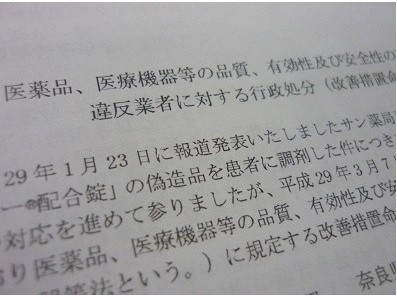 医薬品、医療機器等の品質、有効性及び安全性の
違反業者に対する行政処分（改善措置命
29年1月23日に報道発表いたしましたサン薬局
ー®配合錠」の偽造品を患者に調剤した件につき
の対応を進めて参りましたが、平成29年3月7
り医薬品、医療機器等の品質、有効性及び安
等法という。）に規定する改善措置命
奈良